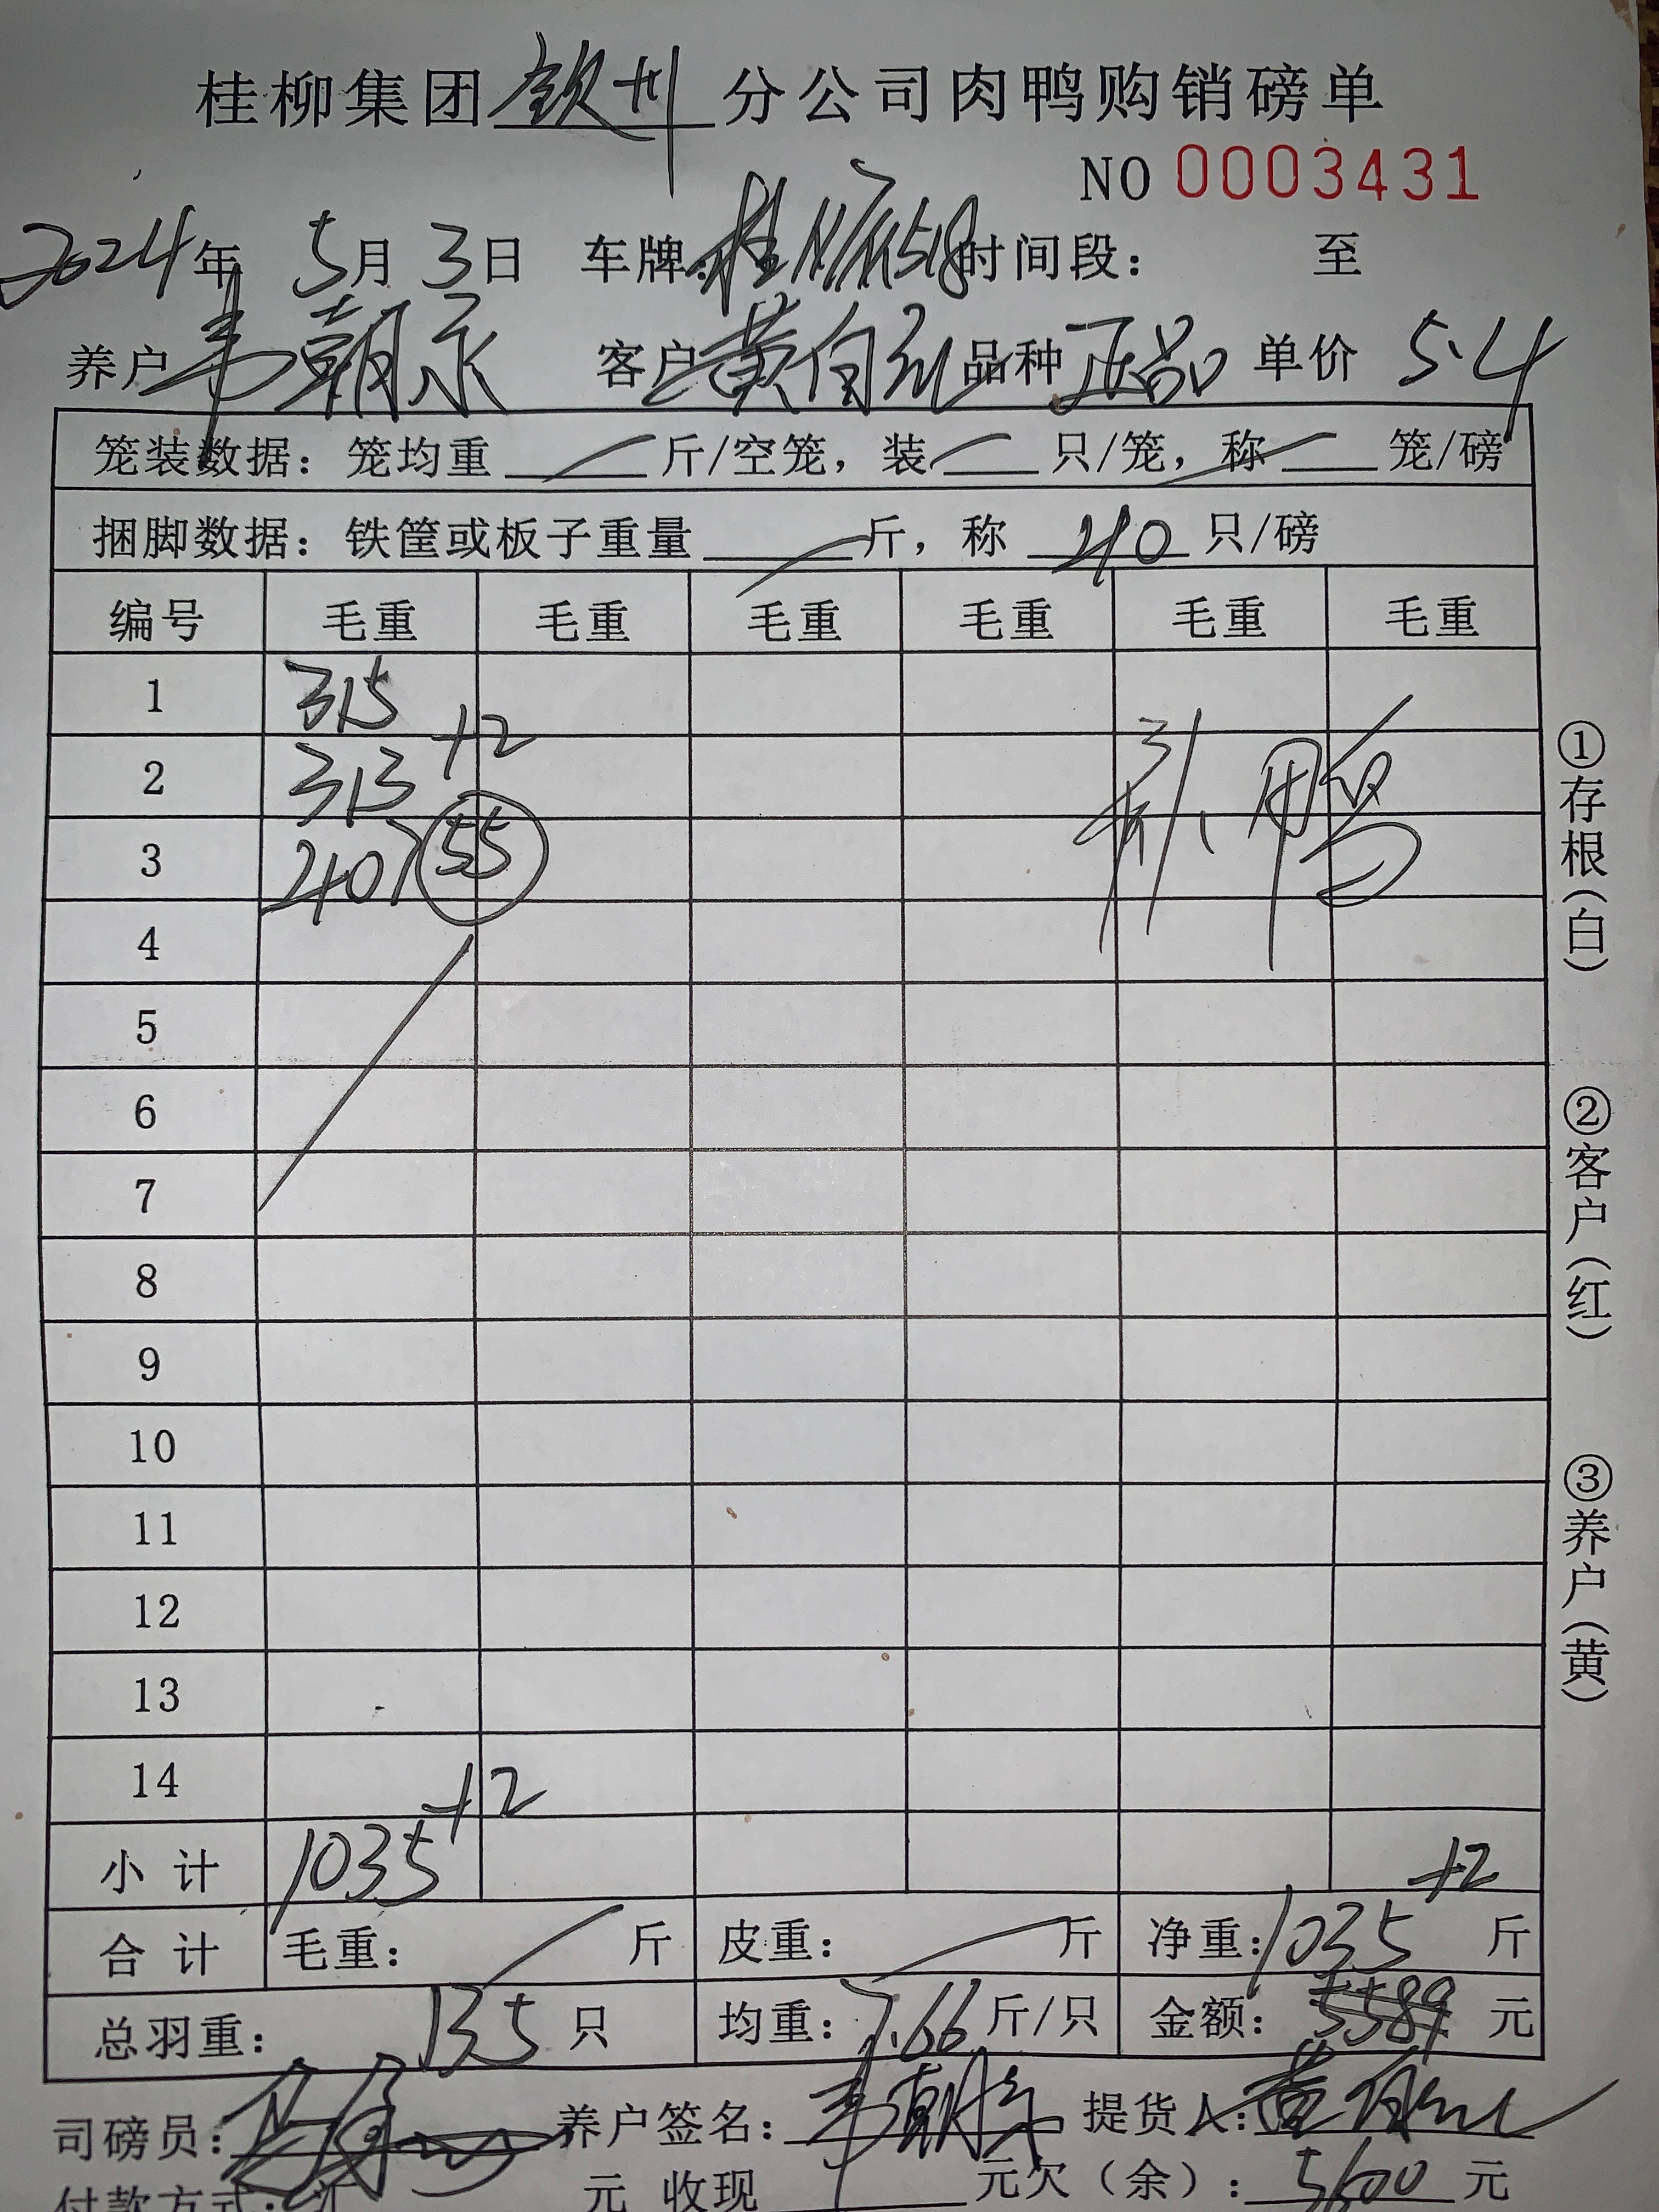 桂柳集团钦州分公司肉鸭购销磅单
NO 0003431
2024年 5月 3日 车牌: 桂 518 时间段: 至
养户 韦朝永 客户 黄 品种 正品 单价 5.4
笼装数据: 笼均重 斤/空笼, 装 只/笼, 称 笼/磅
捆脚数据: 铁筐或板子重量 斤, 称 40 只/磅
编号 毛重 毛重 毛重 毛重 毛重 毛重
1 315
+2
2 313
3 407 55 鸭
4
5
6
7
8
9
10
11
12
13
14
+2
小计 1035
+2
合计 毛重: 斤 皮重: 斤 净重: 1035 斤
总羽重: 135 只 均重: 7.66 斤/只 金额: 5589 元
司磅员: 养户签名: 韦朝永 提货人: 黄
付款方式: 元 收现 元欠(余): 5600 元
①存根(白)
②客户(红)
③养户(黄)